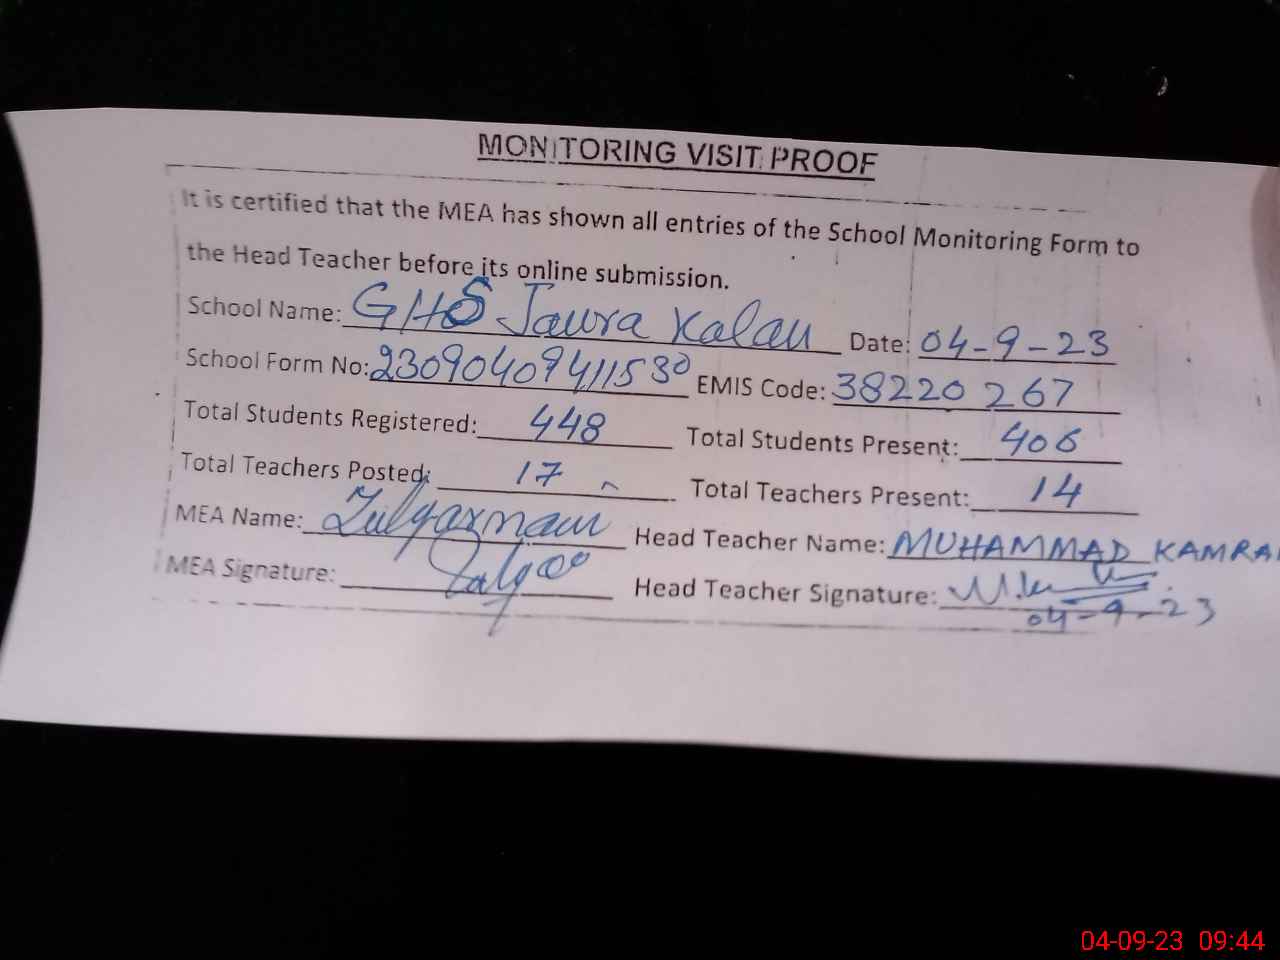 MONITORING VISIT PROOF
It is certified that the MEA has shown all entries of the School Monitoring Form to
the Head Teacher before its online submission.
School Name: GHS Jaura Kalan Date: 04-9-23
School Form No: 2309040994111530 EMIS Code: 38220267
Total Students Registered: 448 Total Students Present: 406
Total Teachers Posted: 17 Total Teachers Present: 14
MEA Name: Zulqarnain Head Teacher Name: MUHAMMAD KAMRAN
MEA Signature: Head Teacher Signature:
04-9-23
04-09-23 09:44